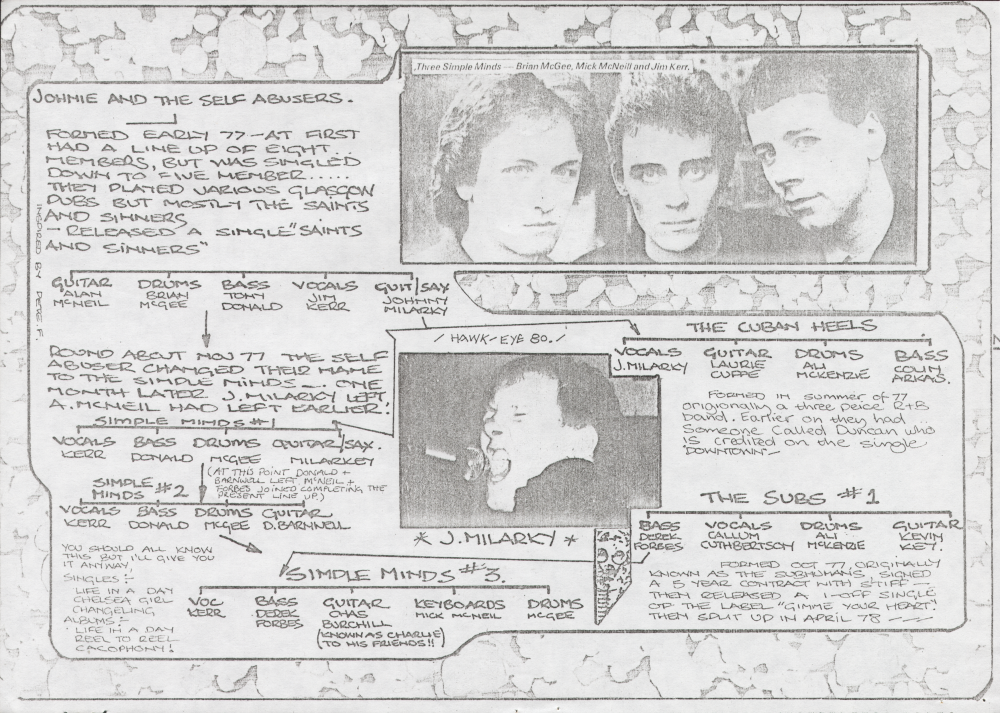 Three Simple Minds — Brian McGee, Mick McNeill and Jim Kerr.
JOHNIE AND THE SELF ABUSERS.
FORMED EARLY 77 - AT FIRST
HAD A LINE UP OF EIGHT..
MEMBERS, BUT WAS SINGLED
DOWN TO FIVE MEMBER.....
THEY PLAYED VARIOUS GLASGOW
PUBS BUT MOSTLY THE SAINTS
AND SINNERS
- RELEASED A SINGLE "SAINTS
AND SINNERS"
INSPIRED BY PETE F.
GUITAR DRUMS BASS VOCALS GUIT/SAX
ALAN BRIAN TONY JIM JOHNNY
MCNEIL MCGEE DONALD KERR MILARKY
ROUND ABOUT NOV 77 THE SELF
ABUSER CHANGED THEIR NAME
TO THE SIMPLE MINDS -. ONE
MONTH LATER J.MILARKY LEFT,
A.MCNEIL HAD LEFT EARLIER!
SIMPLE MINDS #1
VOCALS BASS DRUMS GUITAR/SAX.
KERR DONALD MCGEE MILARKEY
(AT THIS POINT DONALD +
BARNWELL LEFT MCNEIL +
FORBES JOINED COMPLETING THE
PRESENT LINE UP.)
SIMPLE
MINDS #2
VOCALS BASS DRUMS GUITAR
KERR DONALD MCGEE D.BARNWELL
YOU SHOULD ALL KNOW
THIS BUT I'LL GIVE YOU
IT ANYWAY,
SINGLES :-
LIFE IN A DAY
CHELSEA GIRL
CHANGELING
ALBUMS :-
LIFE IN A DAY
REEL TO REEL
CACOPHONY!
SIMPLE MINDS #3.
VOC BASS GUITAR KEYBOARDS DRUMS
KERR DEREK CHAS MICK MCNEIL MCGEE
FORBES BURCHILL
(KNOWN AS CHARLIE
TO HIS FRIENDS!!)
/ HAWK-EYE 80. /
* J.MILARKY *
THE CUBAN HEELS
VOCALS GUITAR DRUMS BASS
J.MILARKY LAURIE ALI COLIN
CUFFE MCKENZIE ARKAS.
FORMED IN SUMMER OF 77
origionally a three peice R+B
band. Earlier on they had
someone called Duncan who
is credited on the single
DOWNTOWN -
THE SUBS #1
BASS VOCALS DRUMS GUITAR
DEREK CALLUM ALI KEVIN
FORBES CUTHBERTSON MCKENZIE KEY.
FORMED OCT 77, ORIGINALLY
KNOWN AS THE SUBHUMANS, SIGNED
A 5 YEAR CONTRACT WITH STIFF -
THEN RELEASED A 1-OFF SINGLE
OF THE LABEL "GIMME YOUR HEART"
THEN SPLIT UP IN APRIL 78